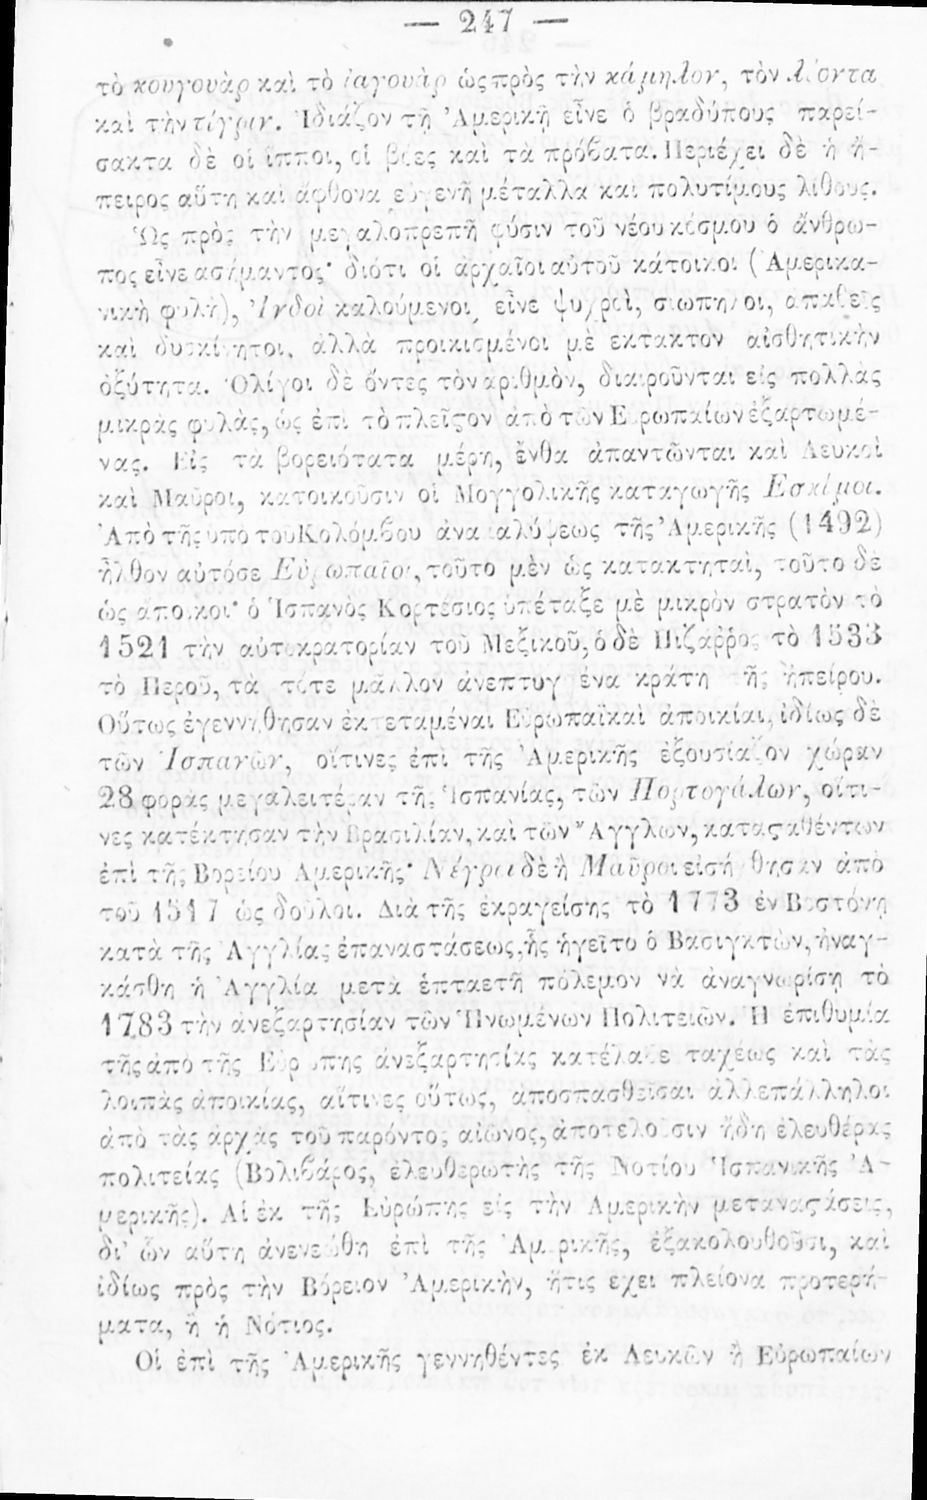 — 247 —
τὸ κουγουὰρ καὶ τὸ ἰαγουὰρ ὡς πρὸς τὴν κάμηλον, τὸν λέοντα
καὶ τὴν τίγριν. Ἰδιάζον τῇ Ἀμερικῇ εἶνε ὁ βραδύπους παρεί-
σακτα δὲ οἱ ἵπποι, οἱ βόες καὶ τὰ πρόβατα. Περιέχει δὲ ἡ ἤ-
πειρος αὕτη καὶ ἄφθονα εὐγενῆ μέταλλα καὶ πολυτίμους λίθους.
Ὡς πρὸς τὴν μεγαλοπρεπῆ φύσιν τοῦ νέου κόσμου ὁ ἄνθρω-
πος εἶνε ἀσήμαντος· διότι οἱ ἀρχαῖοι αὐτοῦ κάτοικοι (Ἀμερικα-
νικὴ φυλή), Ἰνδοὶ καλούμενοι, εἶνε ψυχροί, σιωπηλοι, ἀπαθεῖς
καὶ δυσκίνητοι, ἀλλὰ προικισμένοι μὲ ἔκτακτον αἰσθητικὴν
ὀξύτητα. Ὀλίγοι δὲ ὄντες τὸν ἀριθμὸν, διαιροῦνται εἰς πολλὰς
μικρὰς φυλὰς, ὡς ἐπὶ τὸ πλεῖστον ἀπὸ τῶν Εὐρωπαίων ἐξαρτωμέ-
νας. Εἰς τὰ βορειότατα μέρη, ἔνθα ἀπαντῶνται καὶ Λευκοὶ
καὶ Μαῦροι, κατοικοῦσιν οἱ Μογγολικῆς καταγωγῆς Ἐσκίμοι.
Ἀπὸ τῆς ὑπὸ τοῦ Κολόμβου ἀνακαλύψεως τῆς Ἀμερικῆς (1492)
ἦλθον αὐτόσε Εὐρωπαῖοι, τοῦτο μὲν ὡς κατακτηταὶ, τοῦτο δὲ
ὡς ἄποικοι· ὁ Ἱσπανὸς Κορτέσιος ὑπέταξε μὲ μικρὸν στρατὸν τὸ
1521 τὴν αὐτοκρατορίαν τοῦ Μεξικοῦ, ὁ δὲ Πιζάῤῥος τὸ 1533
τὸ Περοῦ, τὰ τότε μᾶλλον ἀνεπτυγμένα κράτη τῆς ἠπείρου.
Οὕτως ἐγεννήθησαν ἐκτεταμέναι Εὐρωπαϊκαὶ ἀποικίαι, ἰδίως δὲ
τῶν Ἱσπανῶν, οἵτινες ἐπὶ τῆς Ἀμερικῆς ἐξουσίαζον χώραν
28 φορὰς μεγαλειτέραν τῆς Ἱσπανίας, τῶν Πορτογάλων, οἵτι-
νες κατέκτησαν τὴν Βρασιλίαν, καὶ τῶν Ἄγγλων, καταϛαθέντων
ἐπὶ τῆς Βορείου Ἀμερικῆς· Νέγροι δὲ ἢ Μαῦροι εἰσήχθησαν ἀπὸ
τοῦ 1517 ὡς δοῦλοι. Διὰ τῆς ἐκραγείσης τὸ 1773 ἐν Βοστόνῃ
κατὰ τῆς Ἀγγλίας ἐπαναστάσεως, ἧς ἡγεῖτο ὁ Βασιγκτὼν, ἠναγ-
κάσθη ἡ Ἀγγλία μετὰ ἑπταετῆ πόλεμον νὰ ἀναγνωρίσῃ τὸ
1783 τὴν ἀνεξαρτησίαν τῶν Ἡνωμένων Πολιτειῶν. Ἡ ἐπιθυμία
τῆς ἀπὸ τῆς Εὐρώπης ἀνεξαρτησίας κατέλαβε ταχέως καὶ τὰς
λοιπὰς ἀποικίας, αἵτινες οὕτως, ἀποσπασθεῖσαι ἀλλεπάλληλοι
ἀπὸ τὰς ἀρχὰς τοῦ παρόντος αἰῶνος, ἀποτελοῦσιν ἤδη ἐλευθέρας
πολιτείας (Βολιβάρος, ἐλευθερωτὴς τῆς Νοτίου Ἱσπανικῆς Ἀ-
μερικῆς). Αἱ ἐκ τῆς Εὐρώπης εἰς τὴν Ἀμερικὴν μεταναϛάσεις,
δι' ὧν αὕτη ἀνενεώθη ἐπὶ τῆς Ἀμερικῆς, ἐξακολουθοῦσι, καὶ
ἰδίως πρὸς τὴν Βόρειον Ἀμερικὴν, ἥτις ἔχει πλείονα προτερή-
ματα, ἢ ἡ Νότιος.
Οἱ ἐπὶ τῆς Ἀμερικῆς γεννηθέντες ἐκ Λευκῶν ἢ Εὐρωπαίων